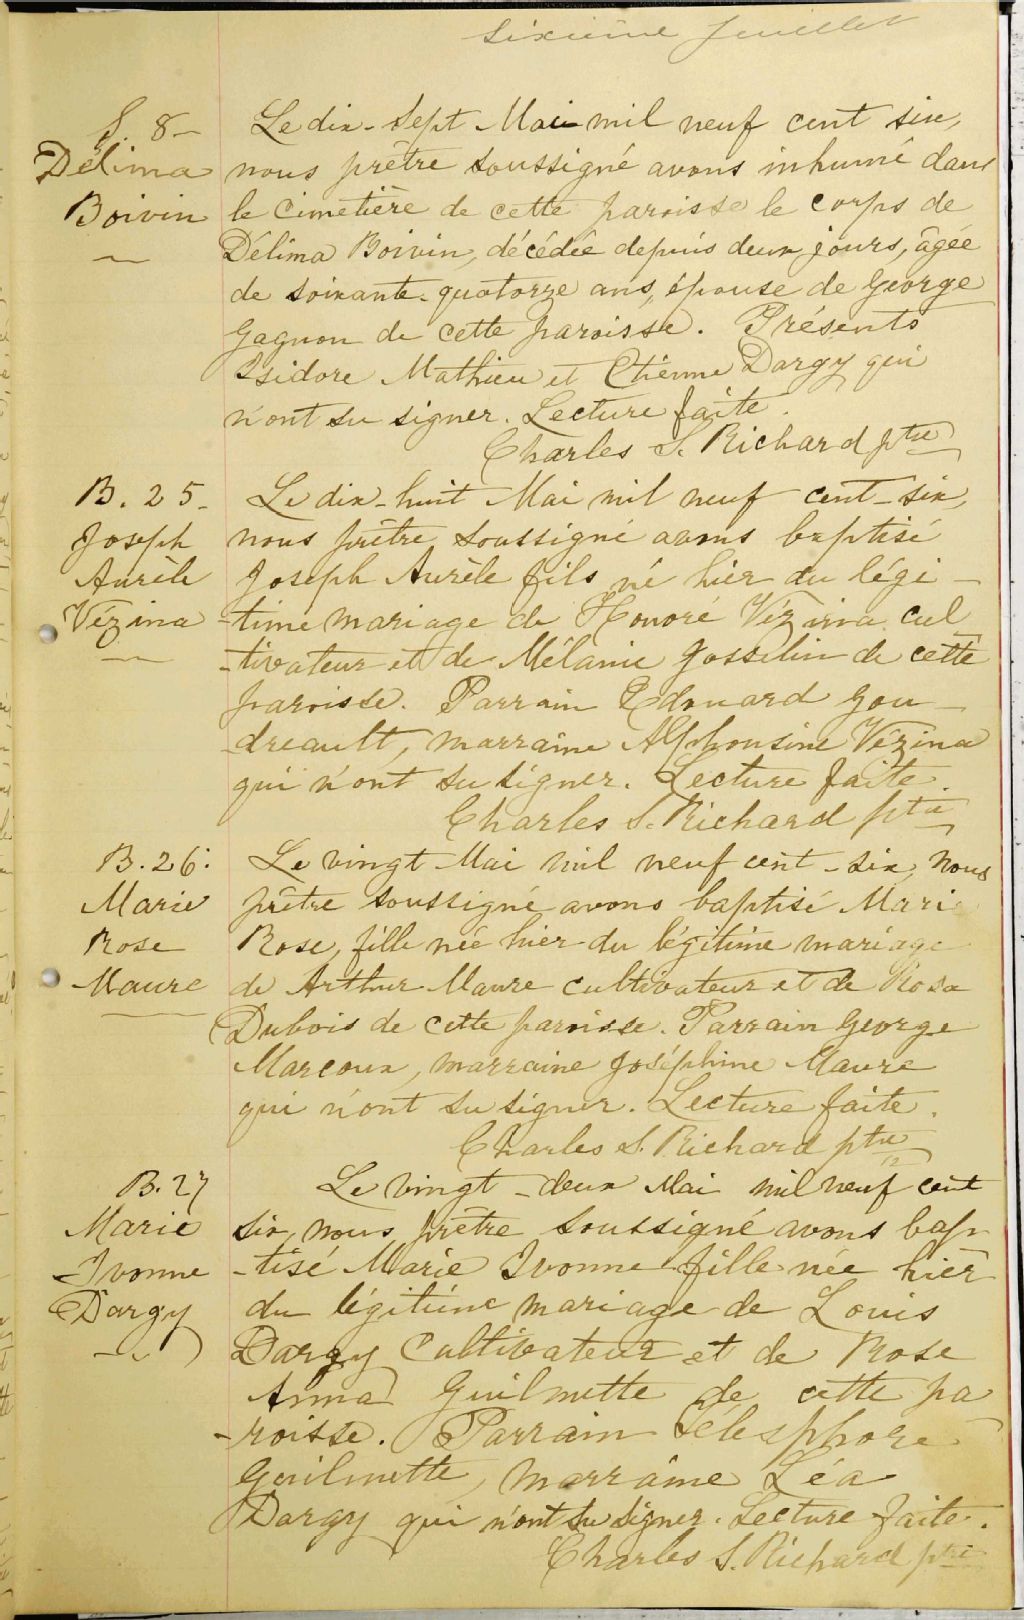 Sixième feuillet
S. 8-
Délima
Boivin
Le dix-sept Mai mil neuf cent six,
nous prêtre soussigné avons inhumé dans
le cimetière de cette paroisse le corps de
Délima Boivin, décédée depuis deux jours, âgée
de soixante-quatorze ans, épouse de George
Gagnon de cette paroisse. Présents
Isidore Mathieu et Etienne Dargy qui
n'ont su signer. Lecture faite.
Charles S. Richard ptre
B. 25-
Joseph
Aurèle
Vézina
Le dix-huit Mai mil neuf cent-six,
nous prêtre soussigné avons baptisé
Joseph Aurèle fils né hier du légi-
-time mariage de Honoré Vézina cul
-tivateur et de Mélanie Gosselin de cette
paroisse. Parrain Edouard Gou-
-dreault, marraine Alphonsine Vézina
qui n'ont su signer. Lecture faite.
Charles S. Richard ptre
B. 26.
Marie
Rose
Maure
Le vingt Mai mil neuf cent-six, nous
prêtre soussigné avons baptisé Marie
Rose, fille née hier du légitime mariage
de Arthur Maure cultivateur et de Rosa
Dubois de cette paroisse. Parrain George
Marcoux, marraine Joséphine Maure
qui n'ont su signer. Lecture faite.
Charles S. Richard ptre
B. 27
Marie
Ivonne
Dargy
Le vingt-deux Mai mil neuf cent
six, nous prêtre soussigné avons bap
-tisé Marie Ivonne fille née hier
du légitime mariage de Louis
Dargy Cultivateur et de Rose
Anna Guilmette de cette pa
-roisse. Parrain Télesphore
Guilmette, marraine Léa
Dargy qui n'ont su signer. Lecture faite.
Charles S. Richard ptre